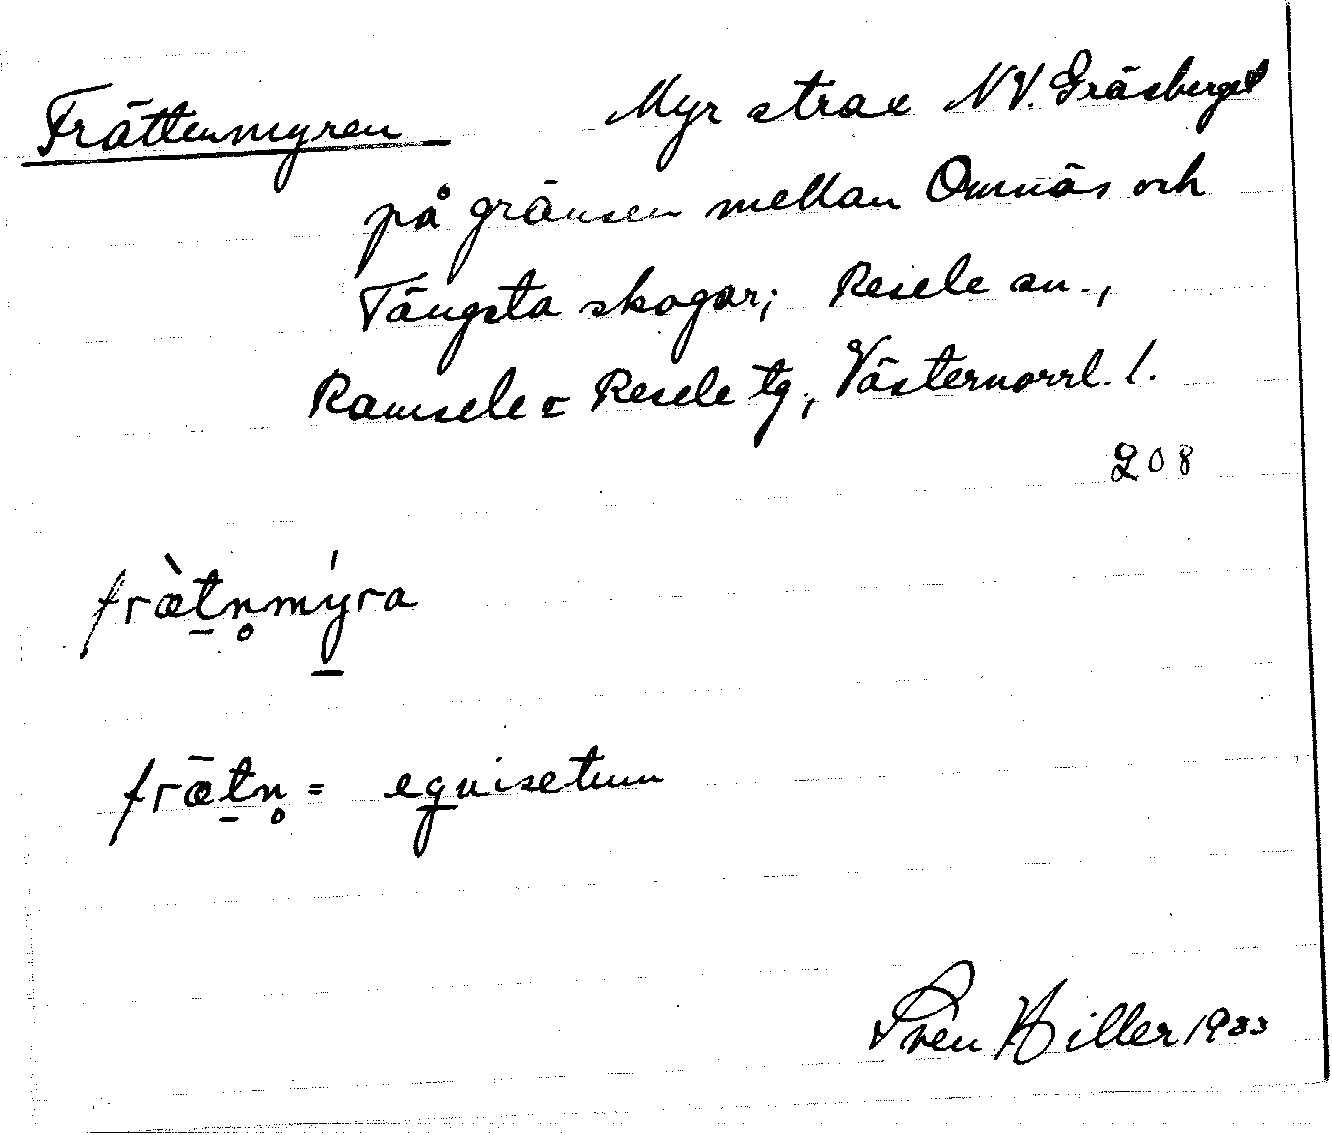 Frättenmyren Myr strax NV. Gräsberget
på gränsen mellan Omnäs och
Tängsta skogar; Resele sn.,
Ramsele o Resele tg, Västernorrl. l.
208
fræ̀tn̥mýra
frǣtn̥ = equisetum
Sven Hiller 1933